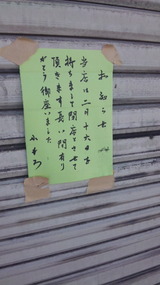 お知らせ
当店は二月十六日を
持ちまして閉店させて
頂きます長い間有り
がとう御座いました